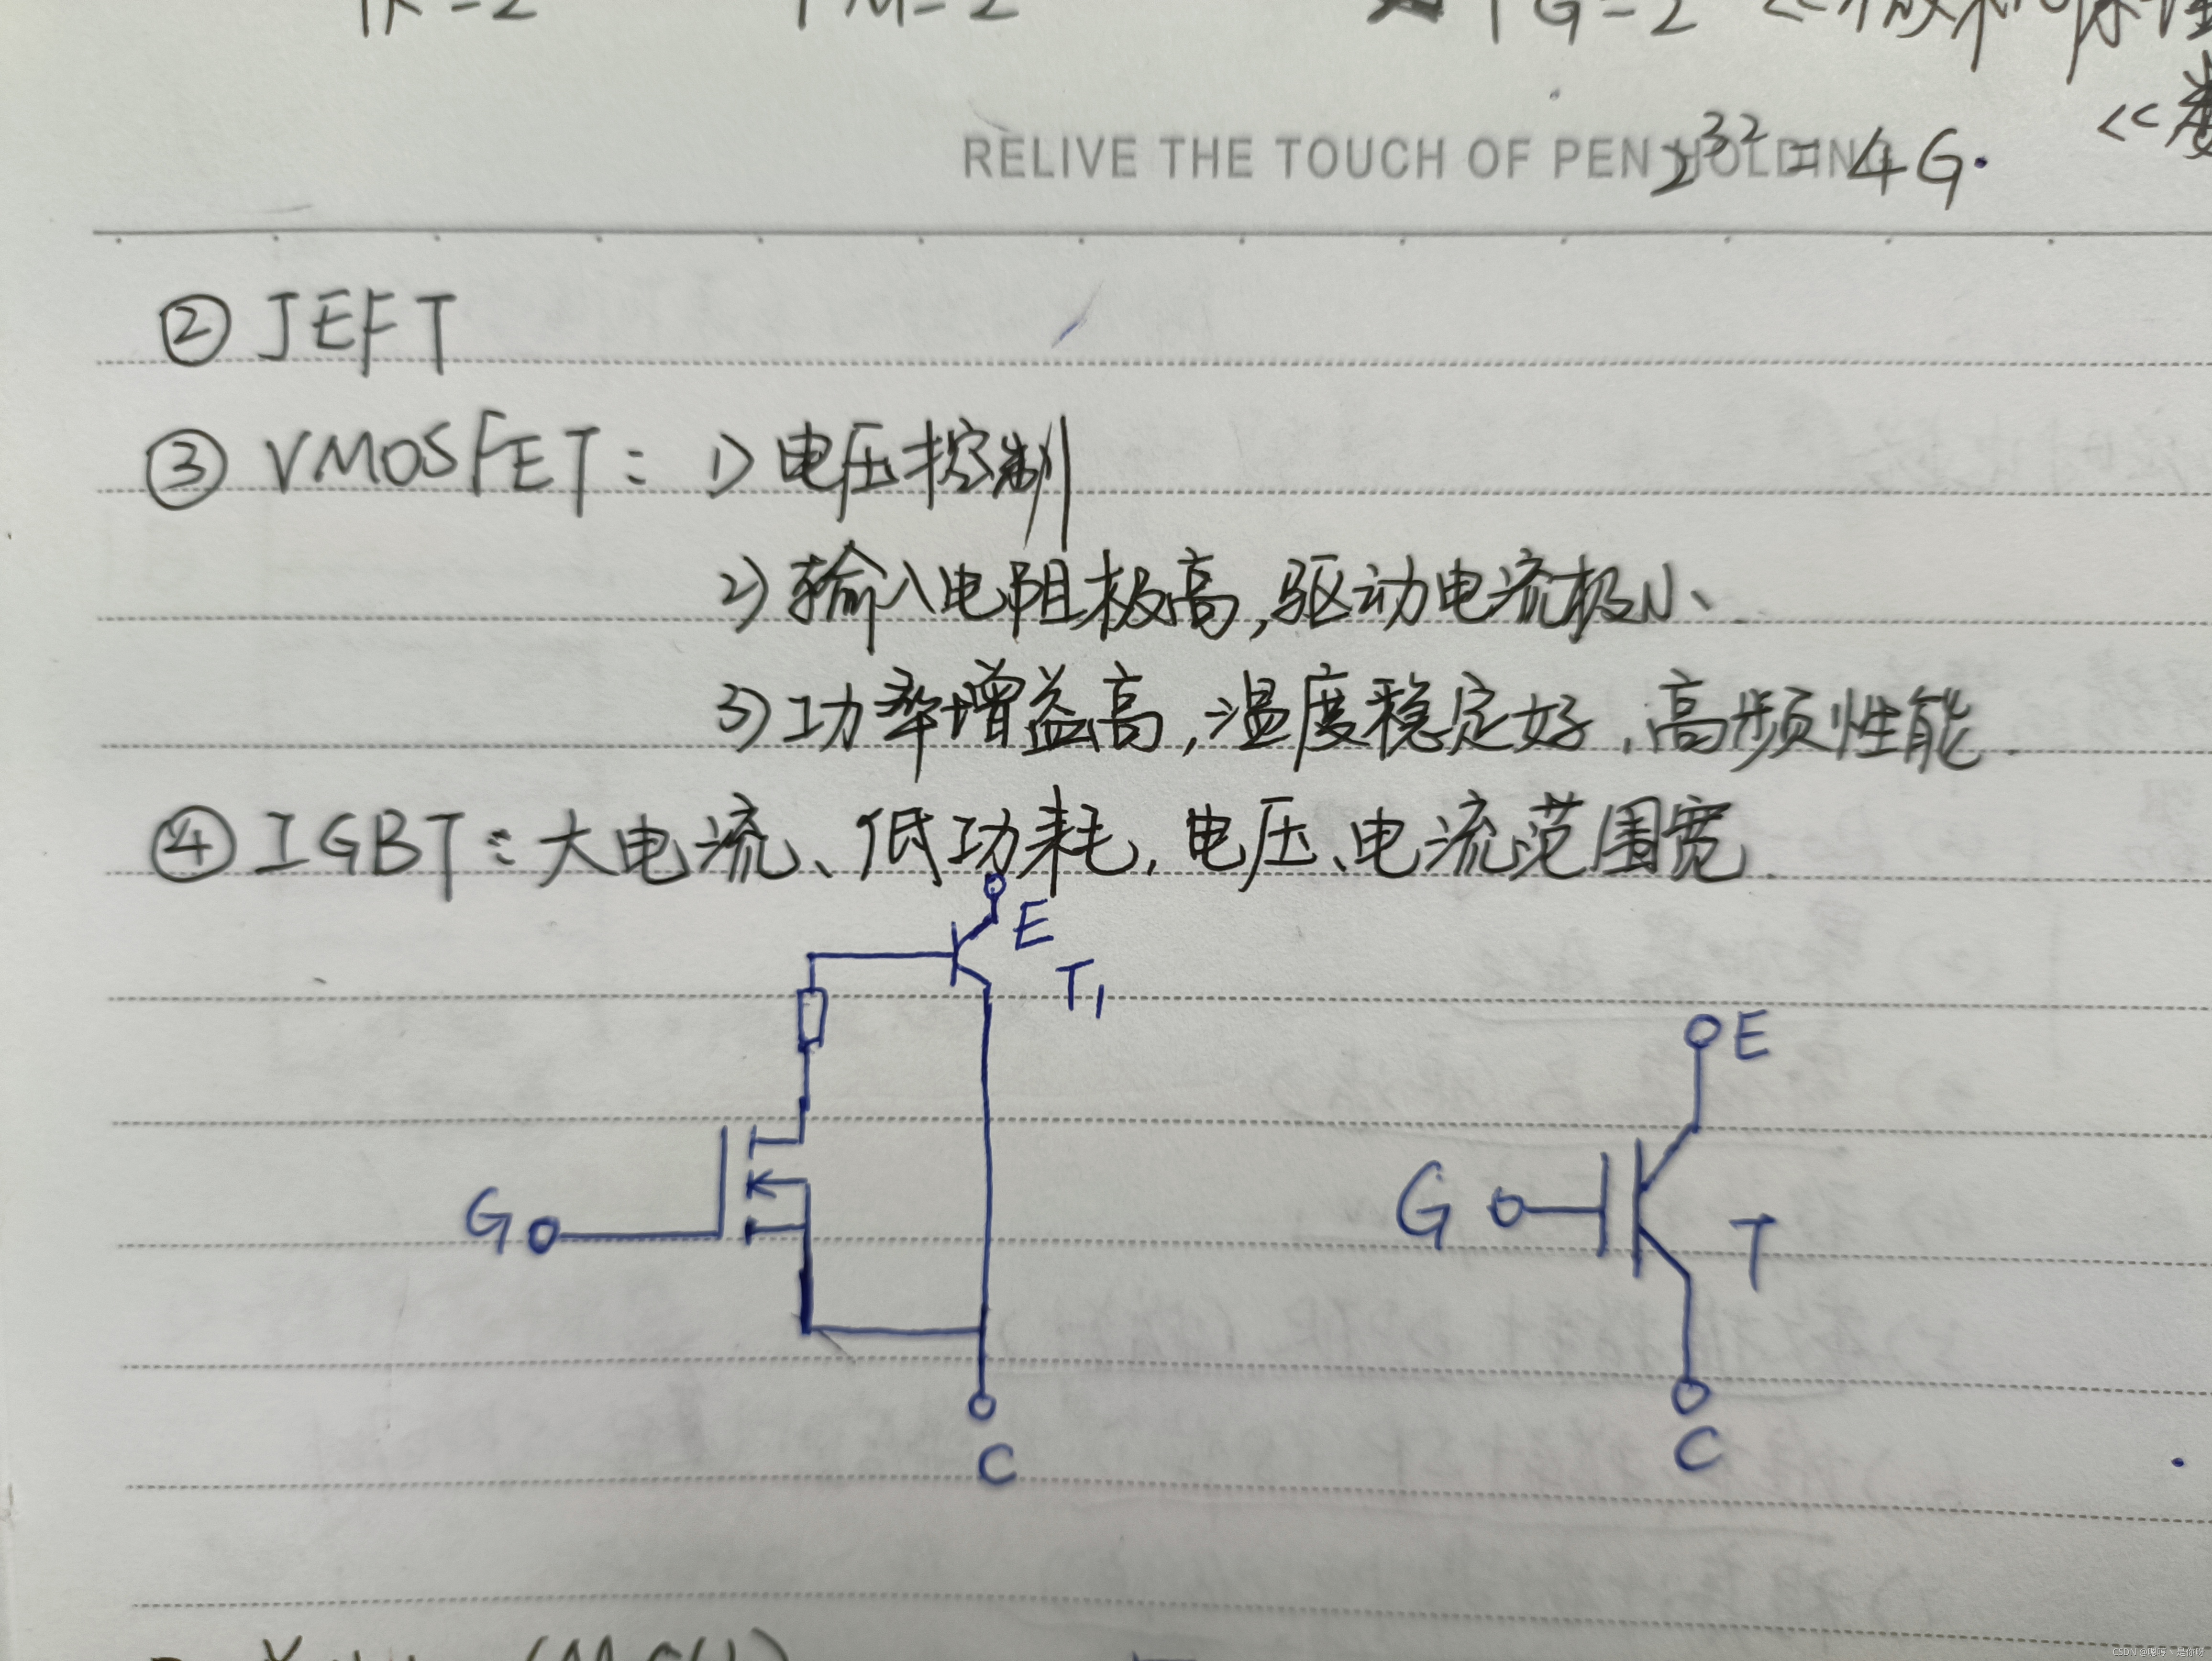 RELIVE THE TOUCH OF PEN HOLDING
2³²=4G.
② JEFT
③ VMOSFET: 1)电压控制
2)输入电阻极高,驱动电流极小、
3)功率增益高,温度稳定好,高频性能.
④ IGBT:大电流、低功耗,电压、电流范围宽.
E
T₁
G
C
E
G
T
C